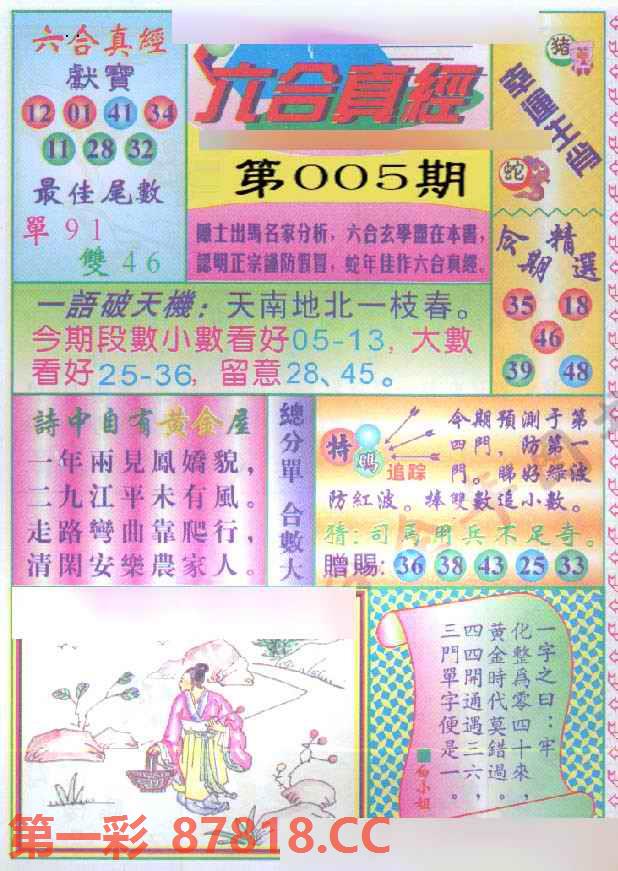 六合真經
獻寶
12 01 41 34
11 28 32
最佳尾數
單 9 1
雙 4 6
六合真經
第005期
隱士出馬名家分析，六合玄學盡在本書，
認明正宗謹防假冒，蛇年佳作六合真經。
猪
蛇
今期
精選
35 18
46
39 48
一語破天機：天南地北一枝春。
今期段數小數看好05-13，大數
看好25-36，留意28、45。
詩中自有黃金屋
一年兩見鳳嬌貌，
二九江平未有風。
走路彎曲靠爬行，
清閑安樂農家人。
總分單 合數大
特碼
追踪
今期預測于第
四門，防第一
門。睇好綠波
防紅波。捧雙數追小數。
猜：司馬用兵不足奇。
贈賜：36 38 43 25 33
一字之曰：牢
化整爲零四十來，
黃金時代莫錯過。
四四開通遇三六，
三門單字便是一。
白小姐
第一彩 87818.CC